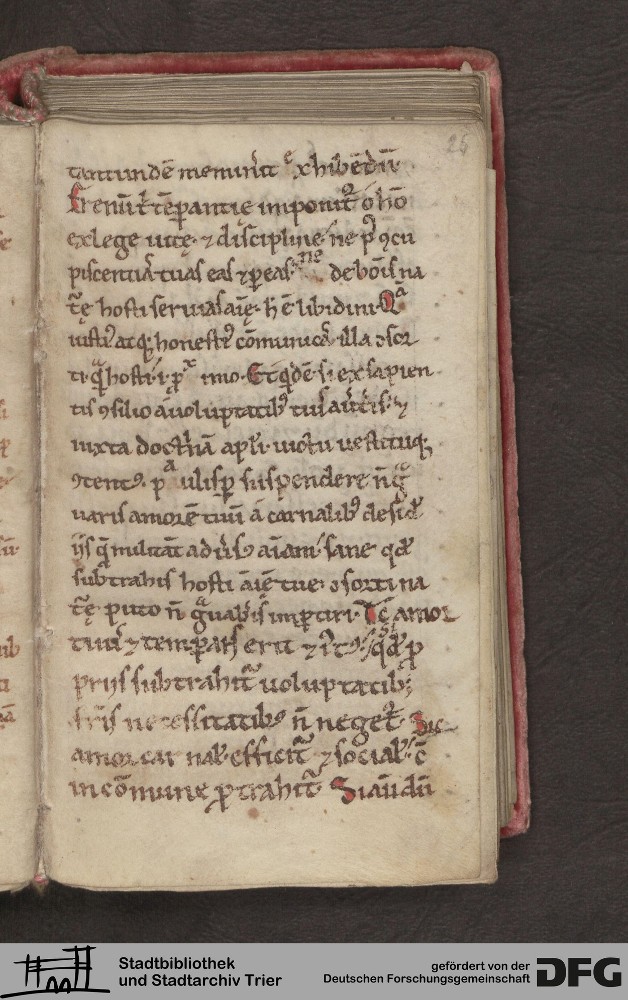 25
tantundē meminerit exhibēdū.
Frenū t̄ tēperantię imponit᷑ o hō
ex lege uitę. ⁊ discipline. ne p̄ ꝯcu
piscentiā tuas eas ⁊ pereas. ne de bonis na
tᷓę hosti seruias aīę. h̄ ē libidini. Qͣ
iustiꝰ atq; honestiꝰ cōmunicat᷑ illa ꝯsor
ti. qͣ hosti. i. ꝓxͥmo. Et qͥdē si ex sapien
tis ꝯsilio a uoluptatibꝰ tuis aūtis. ⁊
iuxta doctͥnā apłi. uictu uestituq;
ꝯtentꝰ. paulisꝑ suspendere n̄ gͣ
uaris amorē tuū a carnalibꝰ deside
riis q̄ militāt aduersꝰ aīam. sane qđ
subtrahis hosti aīę tue. ꝯsorti na
tᷓę puto n̄ gͣuaberis impertiri. Tc̄ amor
tuus ⁊ temꝑans erit ⁊ iustꝰ. si qđ ꝓ
priis subtrahit᷑ uoluptatib;
fr̄is necessitatibꝰ n̄ neget᷑. Sic
amor carnal᷑ efficit᷑ ⁊ social᷑. cū
in cōmune ꝓtrahit᷑. Si aūdū
Stadtbibliothek
und Stadtarchiv Trier
gefördert von der
Deutschen Forschungsgemeinschaft
DFG